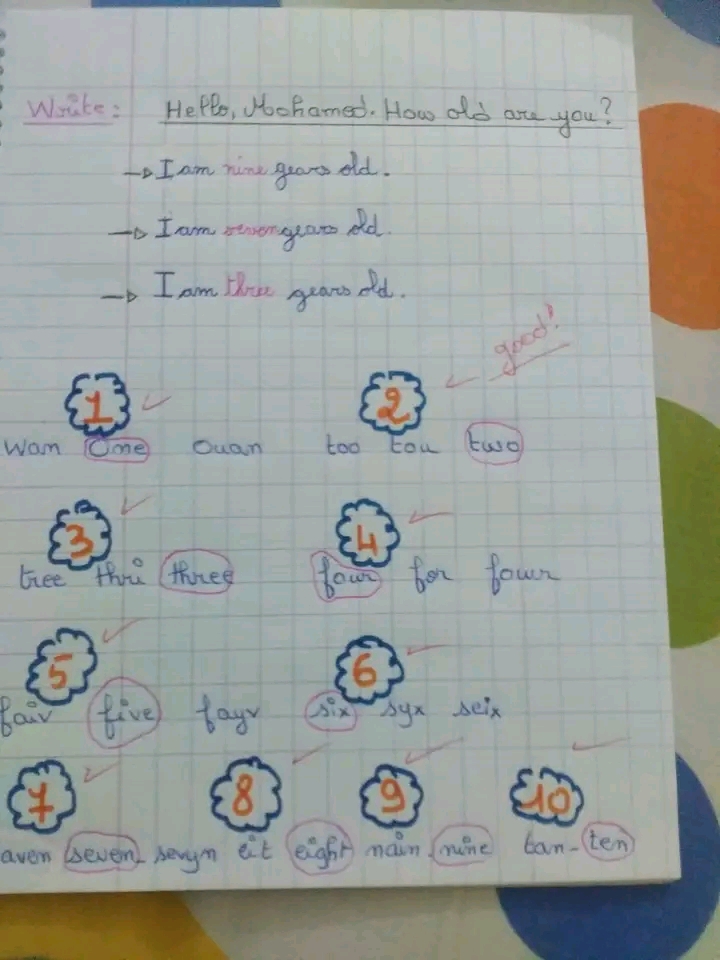 Write: Hello, Mohamed. How old are you?
→ I am nine gears old.
→ I am seven gears old.
→ I am three gears old.
good!
1 2
wan one ouan too tou two
3 4
tree thri three four for fowr
5 6
faiv five fayv six syx seix
7 8 9 10
aven seven sevyn eit eight nain nine tan ten